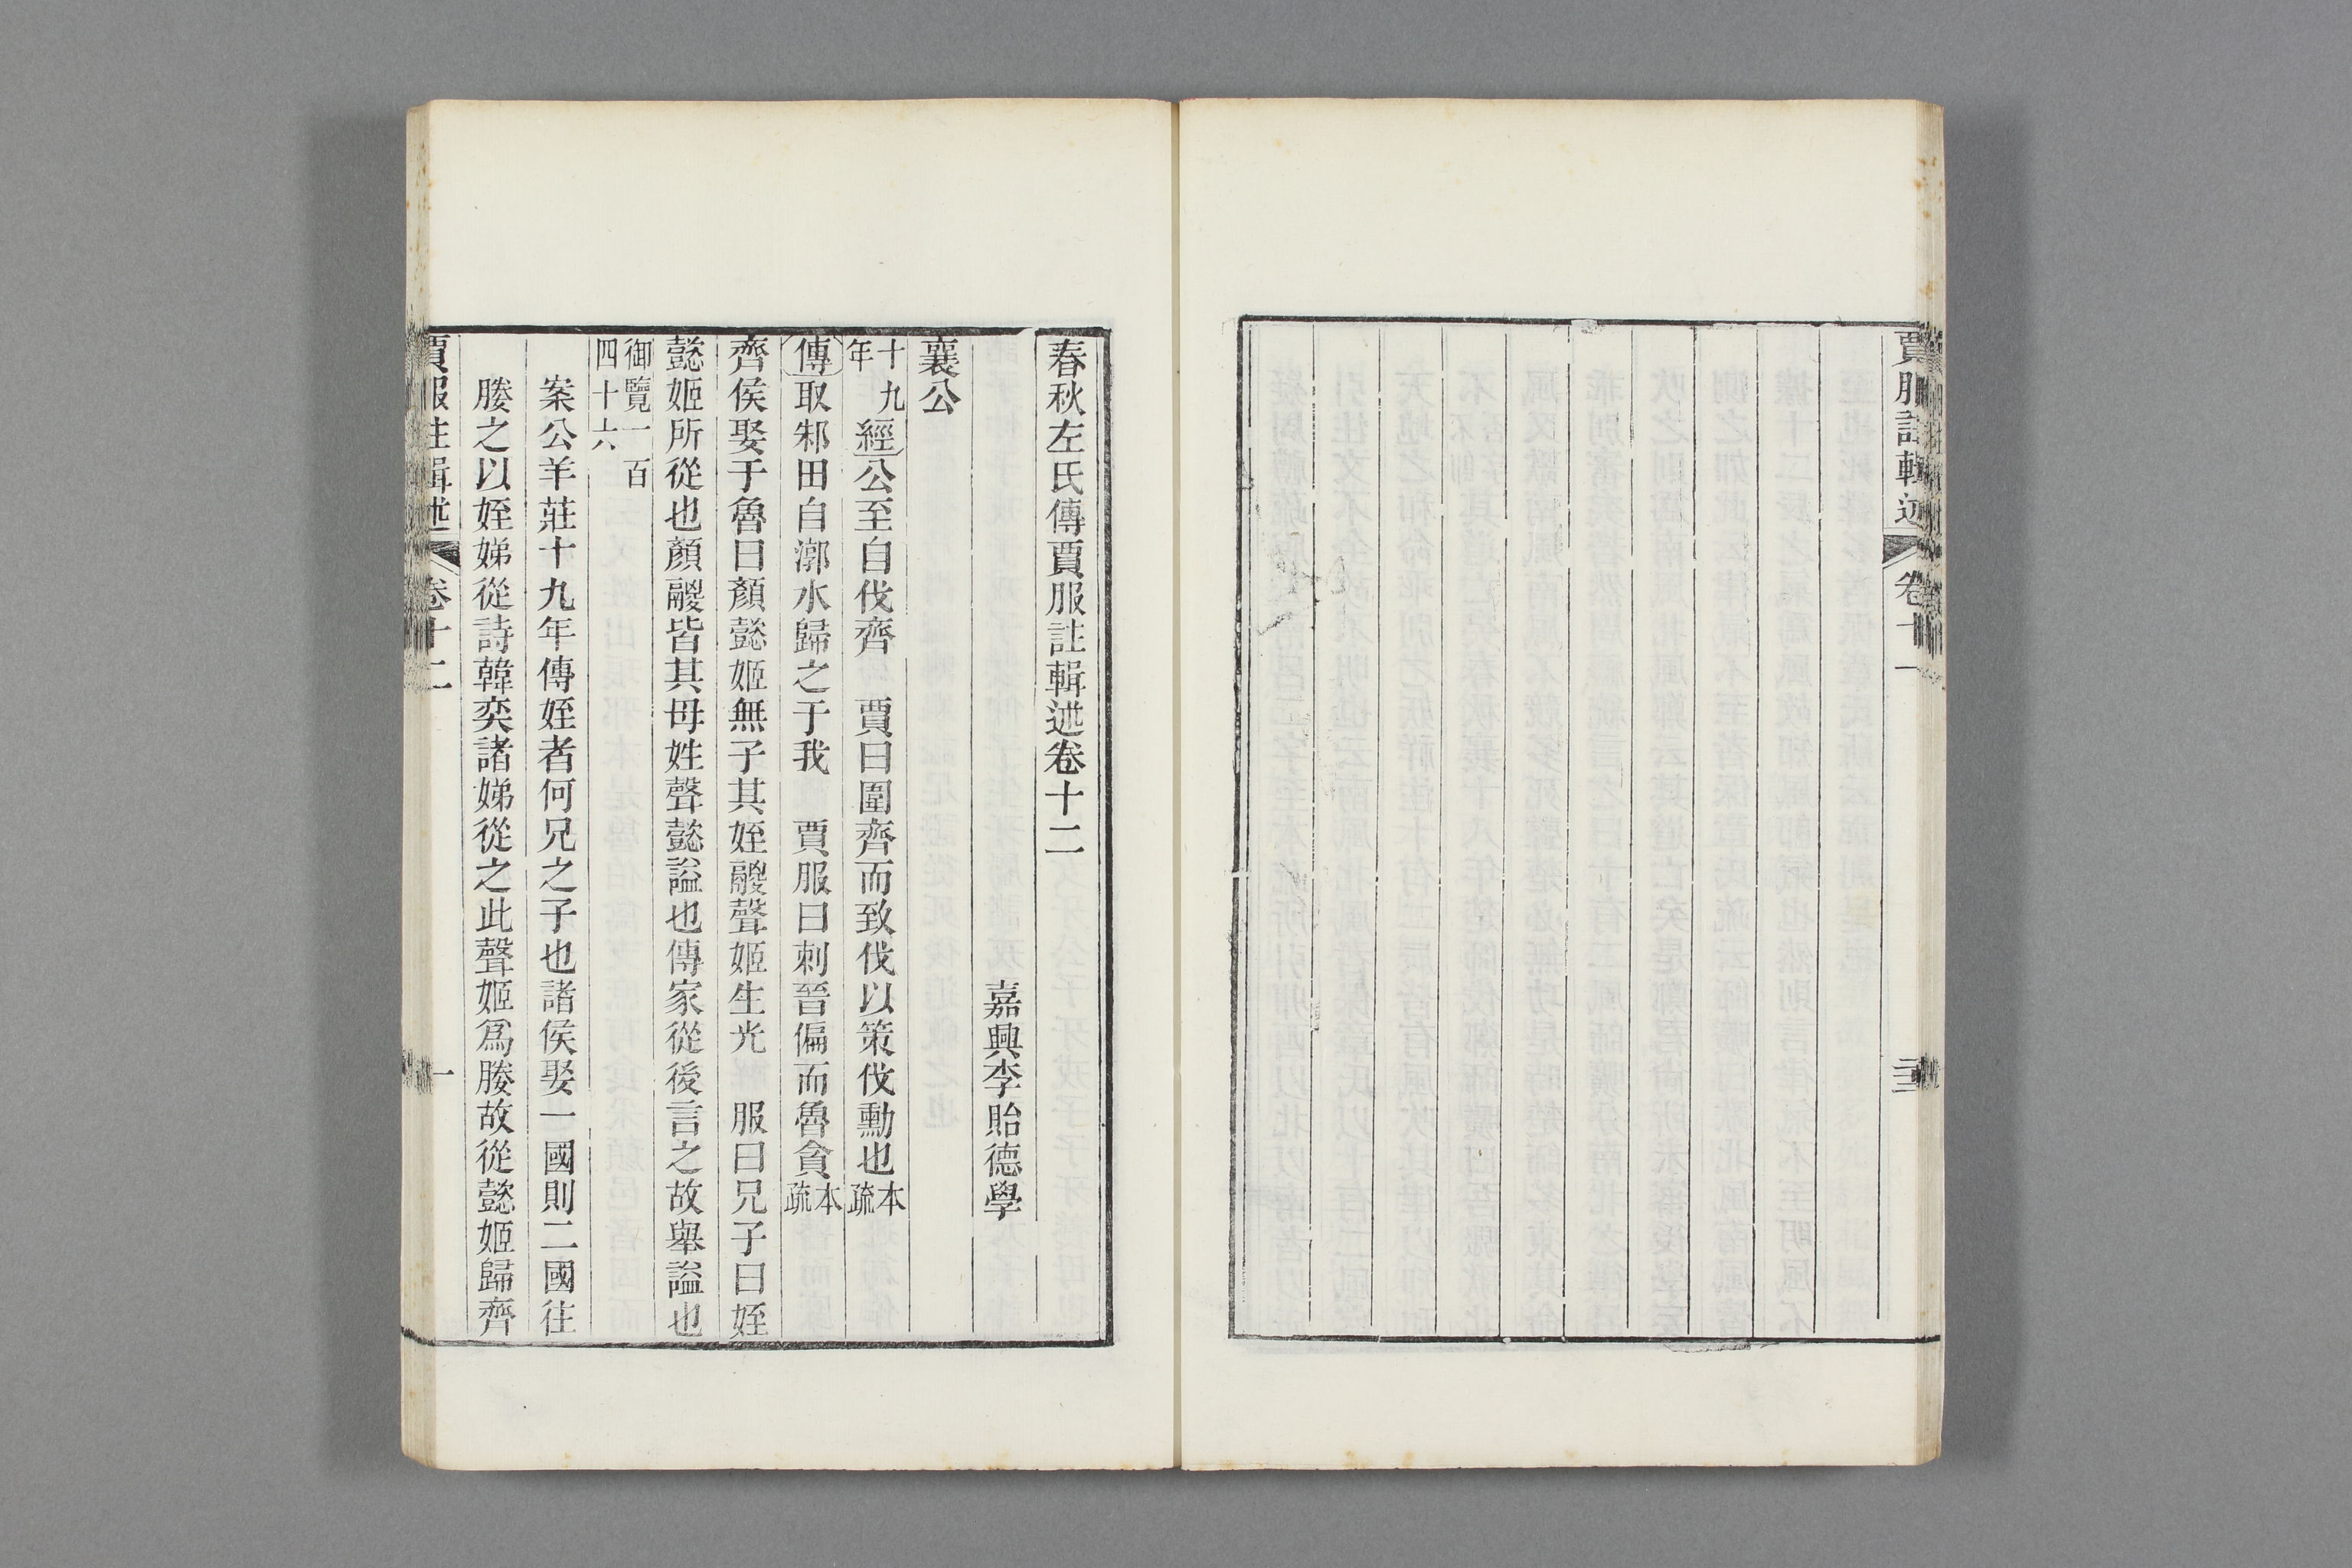 賈服註輯述 卷十一
春秋左氏傳賈服註輯述卷十二
嘉興李貽德學
襄公
十九年 經 公至自伐齊 賈曰圍齊而致伐以策伐勳也 本疏
傳 取邾田自漷水歸之于我 賈服曰刺晉偏而魯貪 本疏
齊侯娶于魯曰顏懿姬無子其姪鬷聲姬生光 服曰兄子曰姪
懿姬所從也顏鬷皆其母姓聲懿謚也傳家從後言之故舉謚也
御覽一百四十六
案公羊莊十九年傳姪者何兄之子也諸侯娶一國則二國往
媵之以姪娣從詩韓奕諸娣從之此聲姬爲媵故從懿姬歸齊
賈服註輯述 卷十二 一